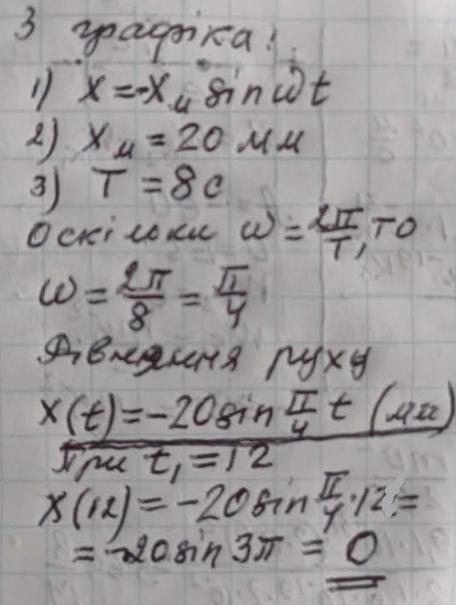 З графіка:
1) x = -xм sin ωt
2) xм = 20 мм
3) T = 8 с
Оскільки ω = 2π/T, то
ω = 2π/8 = π/4
Рівняння руху
x(t) = -20 sin π/4 t (мм)
При t₁ = 12
x(12) = -20 sin π/4 · 12 =
= -20 sin 3π = 0